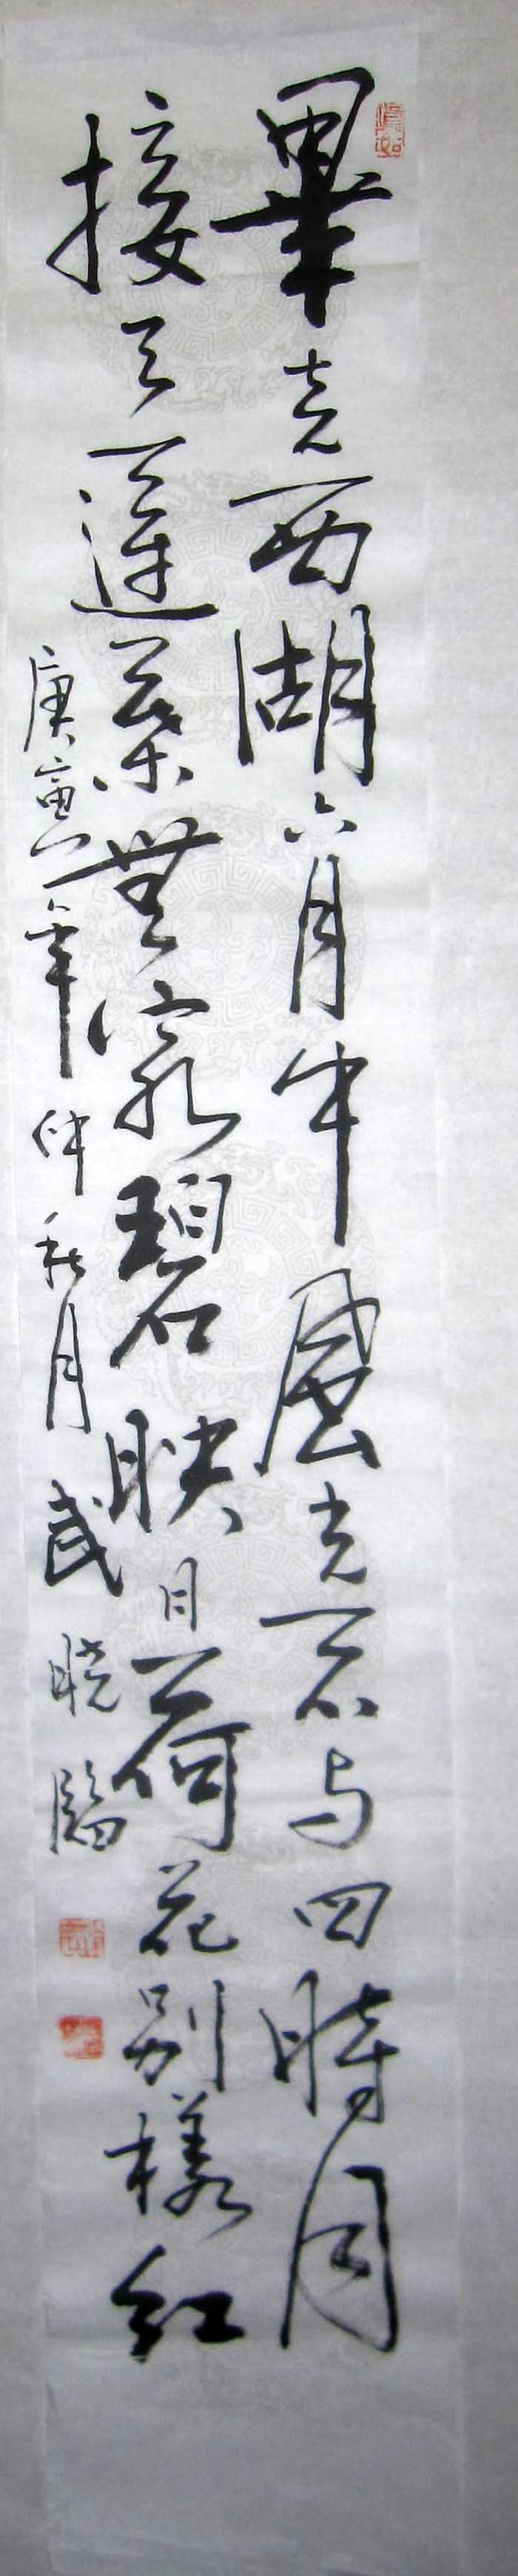 畢竟西湖六月中風光不与四時同
接天蓮葉無窮碧映日荷花別樣紅
庚寅年仲秋月武晓臨